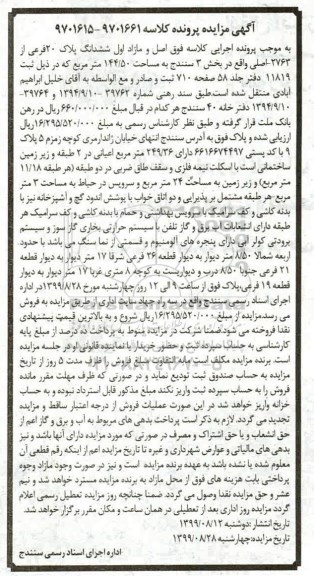 آگهی مزایده پرونده کلاسه ۹۷۰۱۶۶۱ – ۹۷۰۱۶۱۵
به موجب پرونده اجرایی کلاسه فوق اصل و مازاد اول ششدانگ پلاک ۲۰فرعی از
۲۷۶۳-اصلی واقع در بخش ۳ سنندج به مساحت ۱۴۴/۵۰ متر مربع که در ذیل ثبت
۱۱۸۱۹ دفتر جلد ۵۸ صفحه ۷۱۰ ثبت و صادر و مع الواسطه به آقای خلیل ابراهیم
آبادی منتقل شده است طبق سند رهنی شماره ۳۹۷۶۲ -۱۳۹۴/۰۹/۱۰ و ۳۹۷۶۴-
۱۳۹۴/۰۹/۱۰ دفتر خانه ۴۰ سنندج هر کدام در قبال مبلغ ۶۶۰/۰۰۰/۰۰۰ ریال در رهن
بانک ملت قرار گرفته و طبق نظر کارشناس رسمی به مبلغ ۱۶/۲۹۵/۵۲۰/۰۰۰ریال
ارزیابی شده و پلاک فوق به آدرس سنندج انتهای خیابان ژاندارمری کوچه زمزم ۵ پلاک
۹ با کد پستی ۶۶۱۶۶۷۴۴۹۷ دارای ۲۴۹/۳۶ متر مربع اعیانی در ۲ طبقه و زیر زمین
ساختمانی است با اسکلت نیمه فلزی و سقف طاق ضربی در دو طبقه (هر طبقه ۱۱/۱۸
متر مربع) و زیر زمین به مساحت ۲۴ متر مربع و سرویس در حیاط به مساحت ۳ متر
مربع هر طبقه مشتمل بر پذیرایی و دو اتاق خواب با پوشش اندود گچ و آشپزخانه نیز با
بدنه کاشی و کف سرامیک با سرویس بهداشتی و حمام با بدنه کاشی و کف سرامیک هر
طبقه دارای انشعابات آب برق و گاز تلفن با سیستم حرارتی بخاری گاز سوز و سیستم
برودتی کولر آبی دارای پنجره های آلومنیوم و قسمتی از نما سنگ می باشد با حدود
اربعه شمالا ۸/۵۰ متر دیوار به دیوار قطعه ۲۶ فرعی شرقا ۱۷ متر دیوار به دیوار قطعه
۲۱ فرعی جنوبا ۸/۵۰ درب و دیواریست به کوچه ۸ متری غربا ۱۷ متر دیوار به دیوار
قطعه ۱۹ فرعی،پلاک فوق از ساعت ۹ الی ۱۲ روز چهارشنبه مورخ ۱۳۹۹/۸/۲۸در اداره
اجرای اسناد رسمی سنندج واقع در سه راه جهاد سایت اداری از طریق مزایده به فروش
می رسد.مزایده از مبلغ ۱۶/۲۹۵/۵۲۰/۰۰۰ریال شروع و به بالاترین قیمت پیشنهادی
نقدا فروخته می شود.ضمنا شرکت در مزایده منوط به پرداخت ده درصد از مبلغ پایه
کارشناسی به حساب سپرده ثبت و حضور خریدار یا نماینده قانونی او در جلسه مزایده
است. برنده مزایده مکلف است مابه التفاوت مبلغ فروش را ظرف مدت ۵ روز از تاریخ
مزایده به حساب صندوق ثبت تودیع نماید و در صورتی که ظرف مهلت مقرر مانده
فروش را به حساب سپرده ثبت واریز نکند مبلغ مذکور قابل استرداد نبوده و به حساب
خزانه واریز خواهد شد در این صورت عملیات فروش از درجه اعتبار ساقط و مزایده
تجدید می گردد. لازم به ذکر است پرداخت بدهی های مربوط به آب و برق و گاز اعم از
حق انشعاب و یا حق اشتراک و مصرف در صورتی که مورد مزایده دارای آنها باشد و نیز
بدهی های مالیاتی و عوارض شهرداری و غیره تا تاریخ مزایده اعم از اینکه رقم قطعی آن
معلوم شده یا نشده باشد به عهده برنده مزایده است و نیز در صورت وجود مازاد وجوه
پرداختی بابت هزینه های فوق از محل مازاد به برنده مزایده مسترد خواهد شد و نیم
عشر و حق مزایده نقدا وصول می گردد ضمنا چنانچه روز مزایده تعطیل رسمی اعلام
گردد مزایده روز اداری بعد از تعطیلی در همان ساعت و مکان مقرر برگزار خواهد شد.
تاریخ انتشار :دوشنبه ۱۳۹۹/۰۸/۱۲
تاریخ مزایده:چهارشنبه ۱۳۹۹/۰۸/۲۸
اداره اجرای اسناد رسمی سنندج